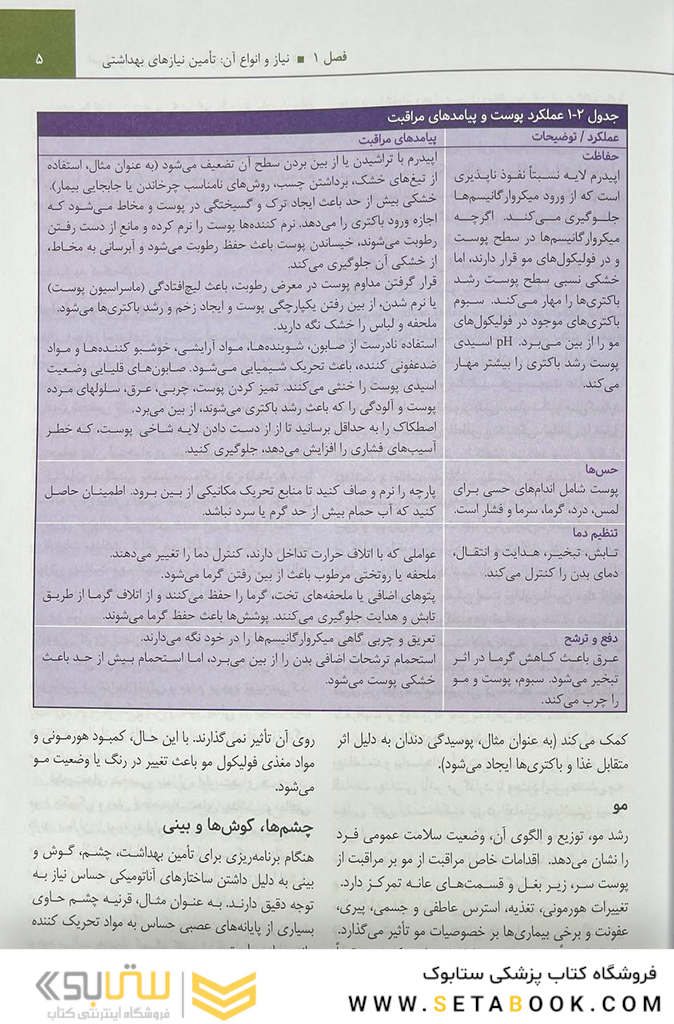 فصل ۱ ■ نیاز و انواع آن: تأمین نیازهای بهداشتی
۵
جدول ۲-۱ عملکرد پوست و پیامدهای مراقبت
عملکرد / توضیحات
پیامدهای مراقبت
حفاظت
اپیدرم لایه نسبتاً نفوذ ناپذیری
است که از ورود میکروارگانیسم‌ها
جلوگیری می‌کند. اگرچه
میکروارگانیسم‌ها در سطح پوست
و در فولیکول‌های مو قرار دارند، اما
خشکی نسبی سطح پوست رشد
باکتری‌ها را مهار می‌کند. سبوم
باکتری‌های موجود در فولیکول‌های
مو را از بین می‌برد. pH اسیدی
پوست رشد باکتری را بیشتر مهار
می‌کند.
اپیدرم با تراشیدن یا از بین بردن سطح آن تضعیف می‌شود (به عنوان مثال، استفاده
از تیغ‌های خشک، برداشتن چسب، روش‌های نامناسب چرخاندن یا جابجایی بیمار).
خشکی بیش از حد باعث ایجاد ترک و گسیختگی در پوست و مخاط می‌شود که
اجازه ورود باکتری را می‌دهد. نرم کننده‌ها پوست را نرم کرده و مانع از دست رفتن
رطوبت می‌شوند، خیساندن پوست باعث حفظ رطوبت می‌شود و آبرسانی به مخاط،
از خشکی آن جلوگیری می‌کند.
قرار گرفتن مداوم پوست در معرض رطوبت، باعث لیچ‌افتادگی (ماسراسیون پوست)
یا نرم شدن، از بین رفتن یکپارچگی پوست و ایجاد زخم و رشد باکتری‌ها می‌شود.
ملحفه و لباس را خشک نگه دارید.
استفاده نادرست از صابون، شوینده‌ها، مواد آرایشی، خوشبو کننده‌ها و مواد
ضدعفونی کننده، باعث تحریک شیمیایی می‌شود. صابون‌های قلیایی وضعیت
اسیدی پوست را خنثی می‌کنند. تمیز کردن پوست، چربی، عرق، سلولهای مرده
پوست و آلودگی را که باعث رشد باکتری می‌شوند، از بین می‌برد.
اصطکاک را به حداقل برسانید تا از از دست دادن لایه شاخی پوست، که خطر
آسیب‌های فشاری را افزایش می‌دهد، جلوگیری کنید.
حس‌ها
پوست شامل اندام‌های حسی برای
لمس، درد، گرما، سرما و فشار است.
پارچه را نرم و صاف کنید تا منابع تحریک مکانیکی از بین برود. اطمینان حاصل
کنید که آب حمام بیش از حد گرم یا سرد نباشد.
تنظیم دما
تابش، تبخیر، هدایت و انتقال،
دمای بدن را کنترل می‌کند.
عواملی که با اتلاف حرارت تداخل دارند، کنترل دما را تغییر می‌دهند.
ملحفه یا روتختی مرطوب باعث از بین رفتن گرما می‌شود.
پتوهای اضافی یا ملحفه‌های تخت، گرما را حفظ می‌کنند و از اتلاف گرما از طریق
تابش و هدایت جلوگیری می‌کنند. پوشش‌ها باعث حفظ گرما می‌شوند.
دفع و ترشح
عرق باعث کاهش گرما در اثر
تبخیر می‌شود. سبوم، پوست و مو
را چرب می‌کند.
تعریق و چربی گاهی میکروارگانیسم‌ها را در خود نگه می‌دارند.
استحمام ترشحات اضافی بدن را از بین می‌برد، اما استحمام بیش از حد باعث
خشکی پوست می‌شود.
کمک می‌کند (به عنوان مثال، پوسیدگی دندان به دلیل اثر
متقابل غذا و باکتری‌ها ایجاد می‌شود).
مو
رشد مو، توزیع و الگوی آن، وضعیت سلامت عمومی فرد
را نشان می‌دهد. اقدامات خاص مراقبت از مو بر مراقبت از
پوست سر، زیر بغل و قسمت‌های عانه تمرکز دارد.
تغییرات هورمونی، تغذیه، استرس عاطفی و جسمی، پیری،
عفونت و برخی بیماری‌ها بر خصوصیات مو تأثیر می‌گذارد.
روی آن تأثیر نمی‌گذارند. با این حال، کمبود هورمونی و
مواد مغذی فولیکول مو باعث تغییر در رنگ یا وضعیت مو
می‌شود.
چشم‌ها، گوش‌ها و بینی
هنگام برنامه‌ریزی برای تأمین بهداشت، چشم، گوش و
بینی به دلیل داشتن ساختارهای آناتومیکی حساس نیاز به
توجه دقیق دارند. به عنوان مثال، قرنیه چشم حاوی
بسیاری از پایانه‌های عصبی حساس به مواد تحریک کننده
فروشگاه کتاب پزشکی ستابوک
WWW.SETABOOK.COM
ستابوک
فروشگاه اینترنتی کتاب